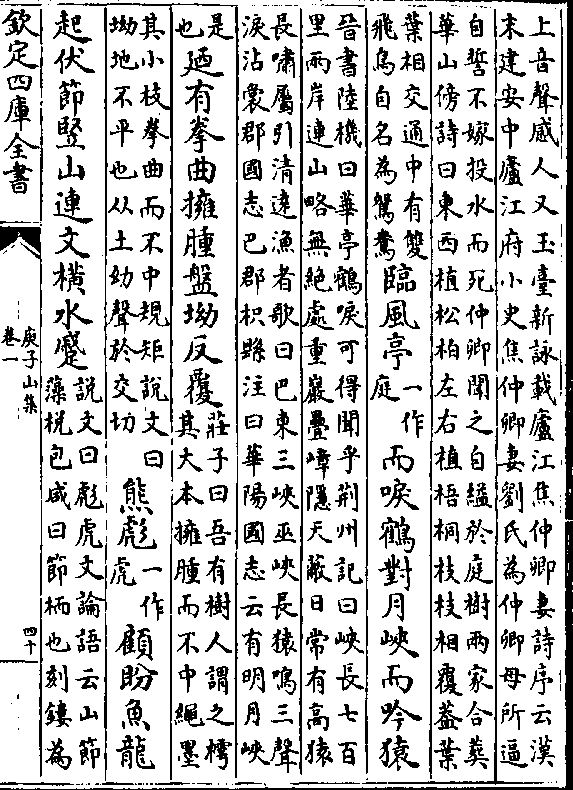 上音聲感人又玉臺新詠載廬江焦仲卿妻詩序云漢
末建安中廬江府小史焦仲卿妻劉氏為仲卿母所逼
自誓不嫁投水而死仲卿聞之自縊於庭樹兩家合葬
華山傍詩曰東西植松柏左右植梧桐枝枝相覆蓋葉
葉相交通中有雙
飛鳥自名為鴛鴦
臨風亭
一作
庭
而唳鶴對月峽而吟猿
晉書陸機曰華亭鶴唳可得聞乎荆州記曰峽長七百
里兩岸連山略無絕處重巖疊嶂隱天蔽日常有高猿
長嘯屬引清遠漁者歌曰巴東三峽巫峽長猿鳴三聲
淚沾裳郡國志巴郡枳縣注曰華陽國志云有明月峽
是
也
迺有拳曲擁腫盤坳反覆
莊子曰吾有樹人謂之樗
其大本擁腫而不中繩墨
其小枝拳曲而不中規矩說文曰
坳地不平也从土幼聲於交切
熊彪
一作
虎
顧盼魚龍
起伏節豎山連文橫水蹙
說文曰彪虎文論語云山節
藻梲包咸曰節栭也刻鏤為
欽定四庫全書
庾子山集
卷一
四十